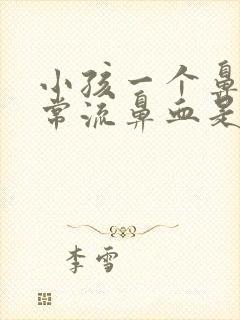 小孩一个鼻
常流鼻血是
李雪